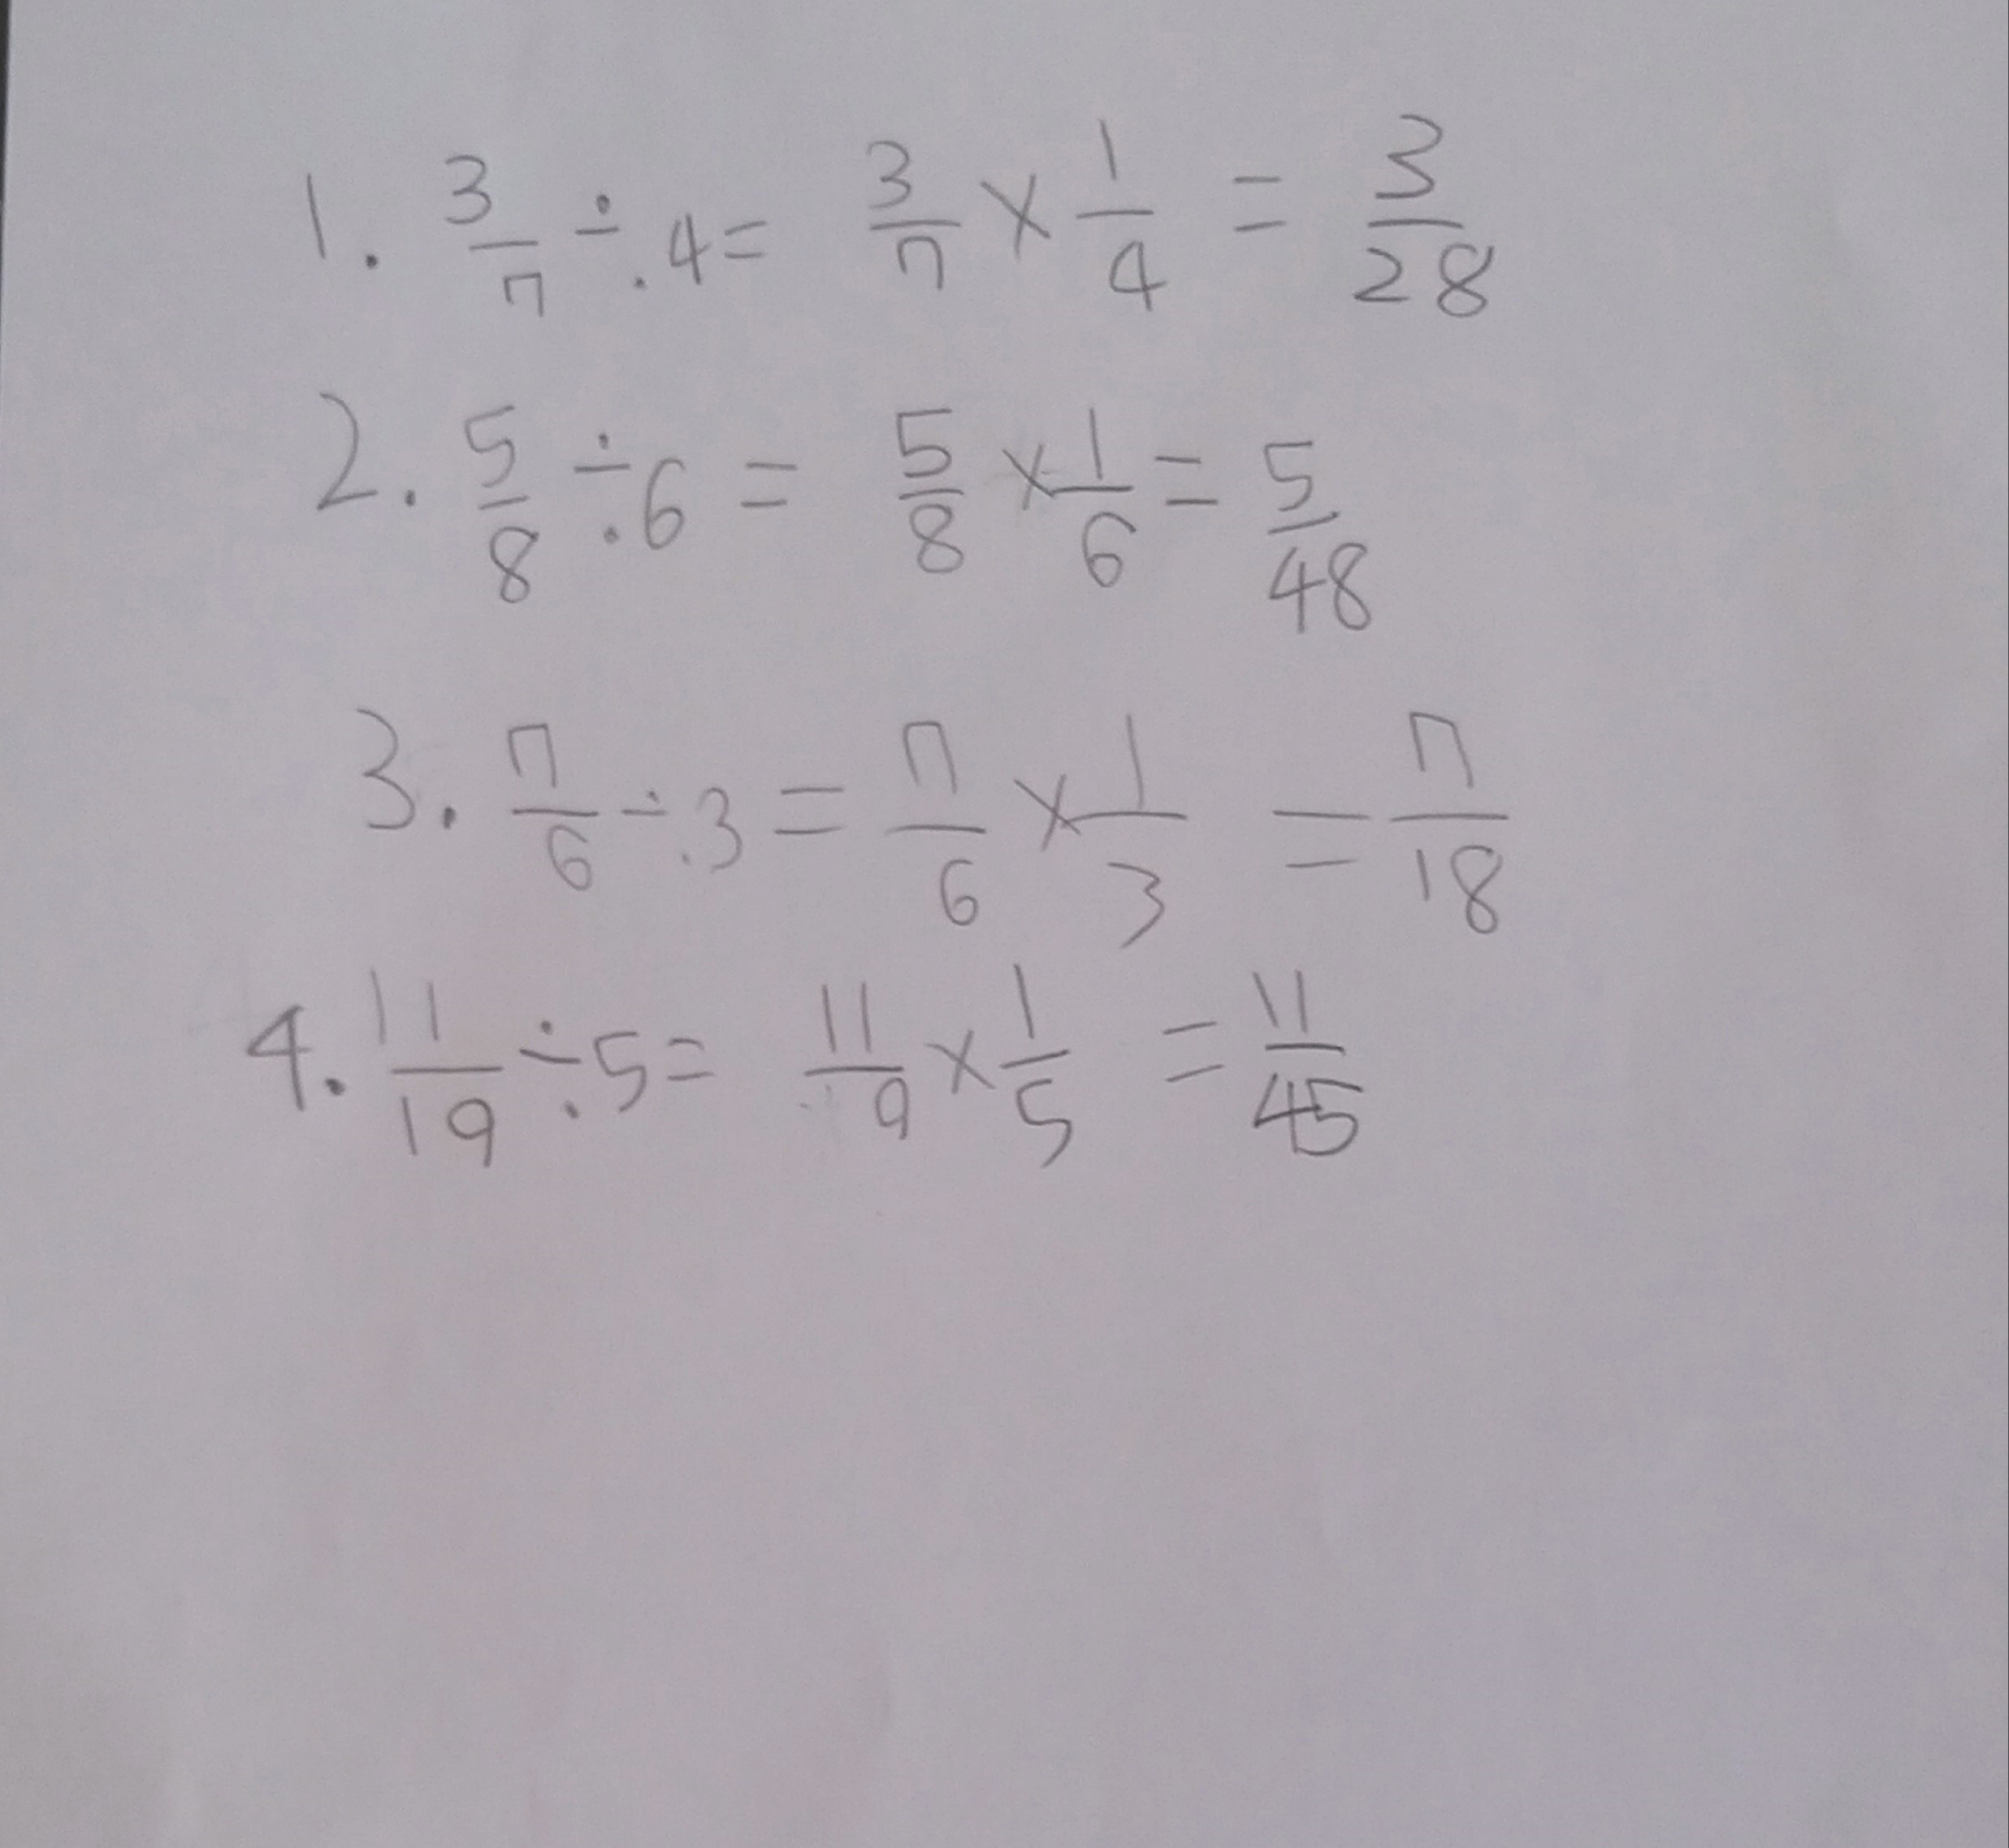 1. 3/7 ÷ 4 = 3/7 × 1/4 = 3/28
2. 5/8 ÷ 6 = 5/8 × 1/6 = 5/48
3. 7/6 ÷ 3 = 7/6 × 1/3 = 7/18
4. 11/19 ÷ 5 = 11/9 × 1/5 = 11/45